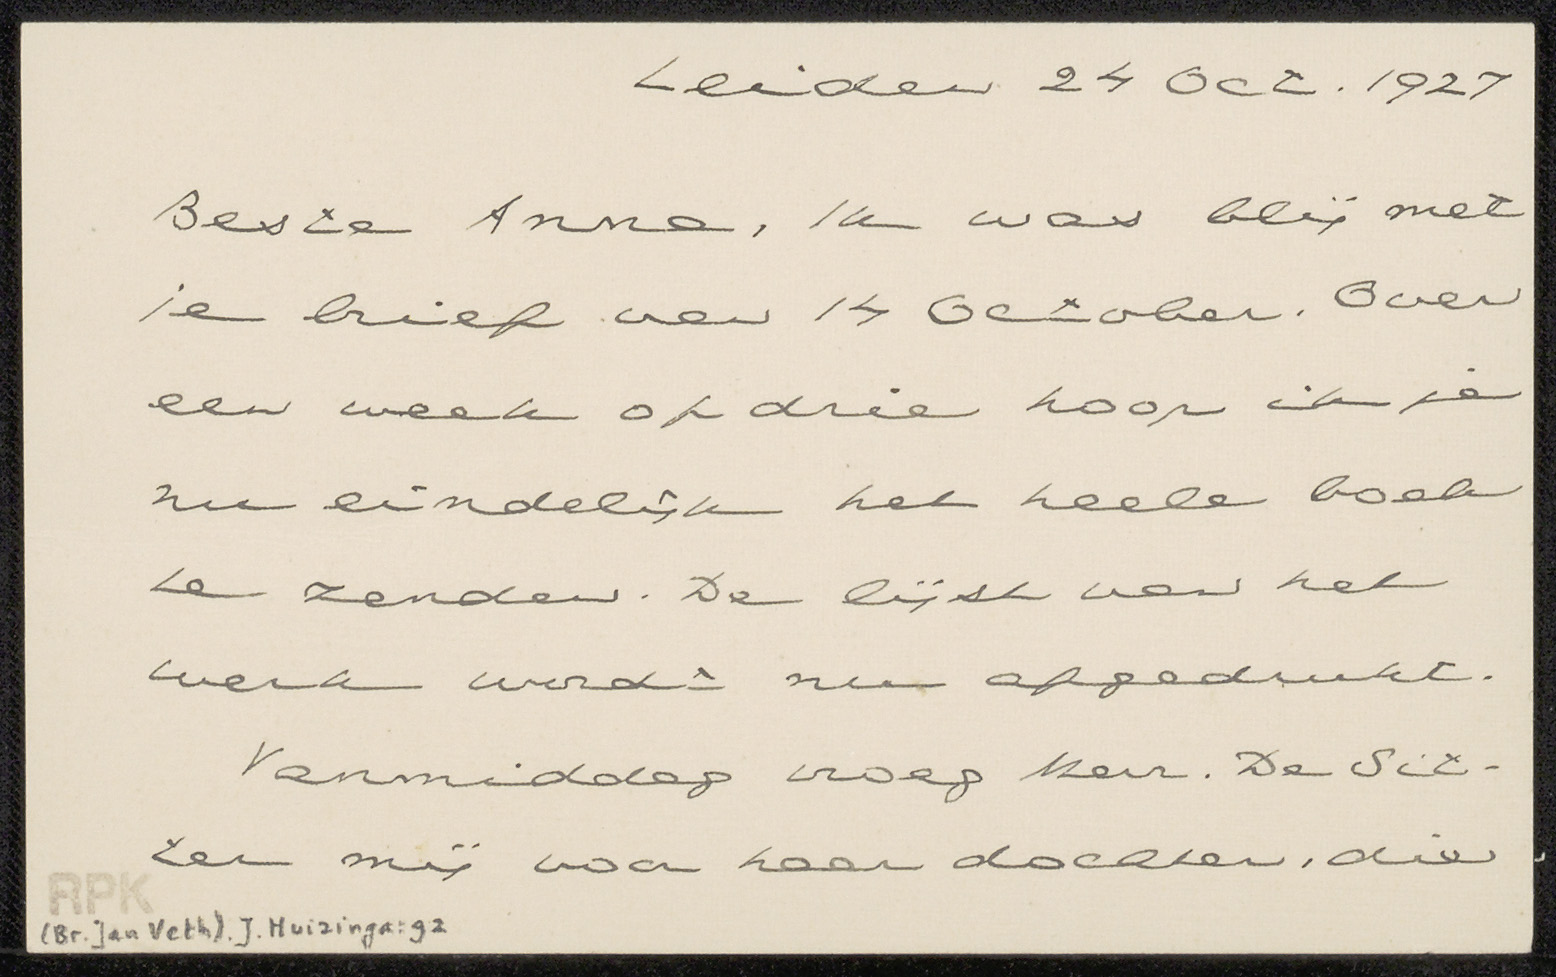 Leiden 24 Oct. 1927
Beste Anna, Ik was blij met
je brief van 14 October. Over
een week of drie hoop ik je
nu eindelijk het heele boek
te zenden. De lijst van het
werk wordt nu afgedrukt.
Vanmiddag vroeg Mevr. De Sit-
ter mij voor haar dochter, die
RPK
(Br. Jan Veth). J. Huizinga: 92